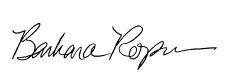 Barbara Roper